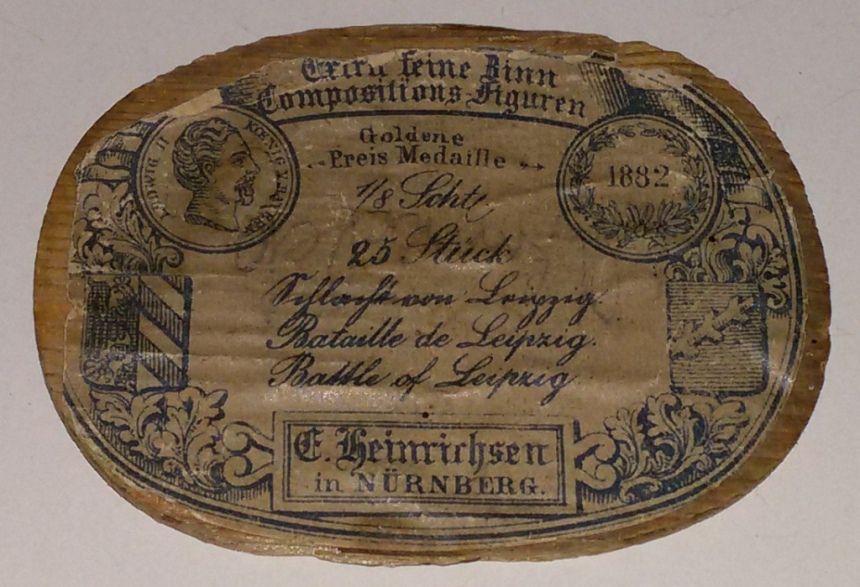 Extra feine Zinn
Compositions-Figuren
LUDWIG II KOENIG V. BAYERN
Goldene
Preis Medaille
1882
1/8 Scht
25 Stück
Schlacht von Leipzig.
Bataille de Leipzig.
Battle of Leipzig
E. Heinrichsen
in NÜRNBERG.